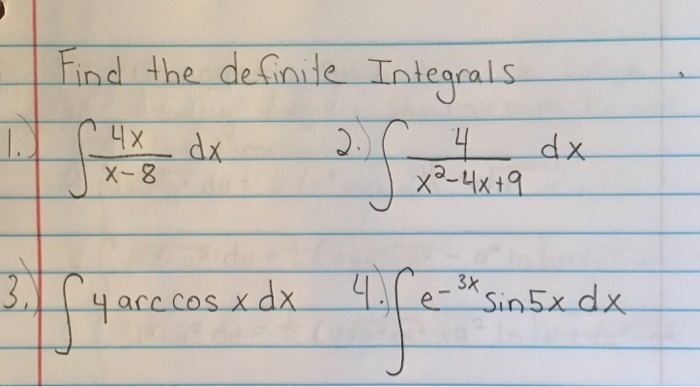 Find the definite Integrals
1.) ∫ 4x/(x-8) dx 2.) ∫ 4/(x²-4x+9) dx
3.) ∫ 4 arccos x dx 4. ∫ e^-3x sin5x dx